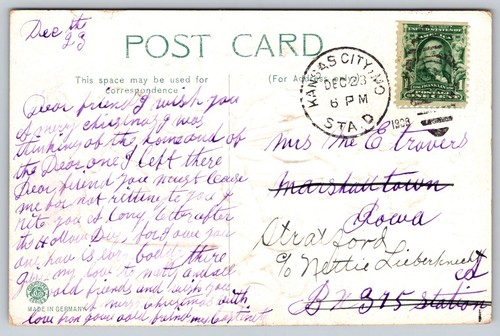 Dec th
23
POST CARD
This space may be used for
correspondence
(For Address only)
KANSAS CITY, MO.
DEC 23
6 PM
STA. D
1908
Dear friend I wish you
a mery christmas I was
thinking of the home and of
the Dear one I left there
Dear friend you must Excuse
me for not ritting to you I
rite you a long letter after
the Hollow Days, for I owe you
one, how is every body there
give my love to and all
old friends and wish you
a mery christmas with
love from your old friend
Mrs Mc E Travers
Marshalltown
Iowa
Stratford
c/o Nettie Lieberknecht
Bx 315 Station
MADE IN GERMANY
ONE CENT